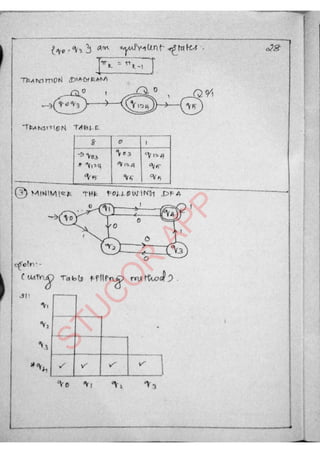 {q0, q3} are equivalent states. 28
πk = πk-1
TRANSITION DIAGRAM
0 0 0,1
→ q0q3 1 q124 1 q5
TRANSITION TABLE
δ 0 1
→ q03 q03 q124
* q124 q124 q5
q5 q5 q5
3) MINIMISE THE FOLLOWING DFA
→ q0 0 q1 1 q4 1
0
1 0 1
q2 0 q3
0
soln:-
(using Table filling method).
q1
q2
q3
*q4 ✓ ✓ ✓ ✓
q0 q1 q2 q3
STUCOR APP